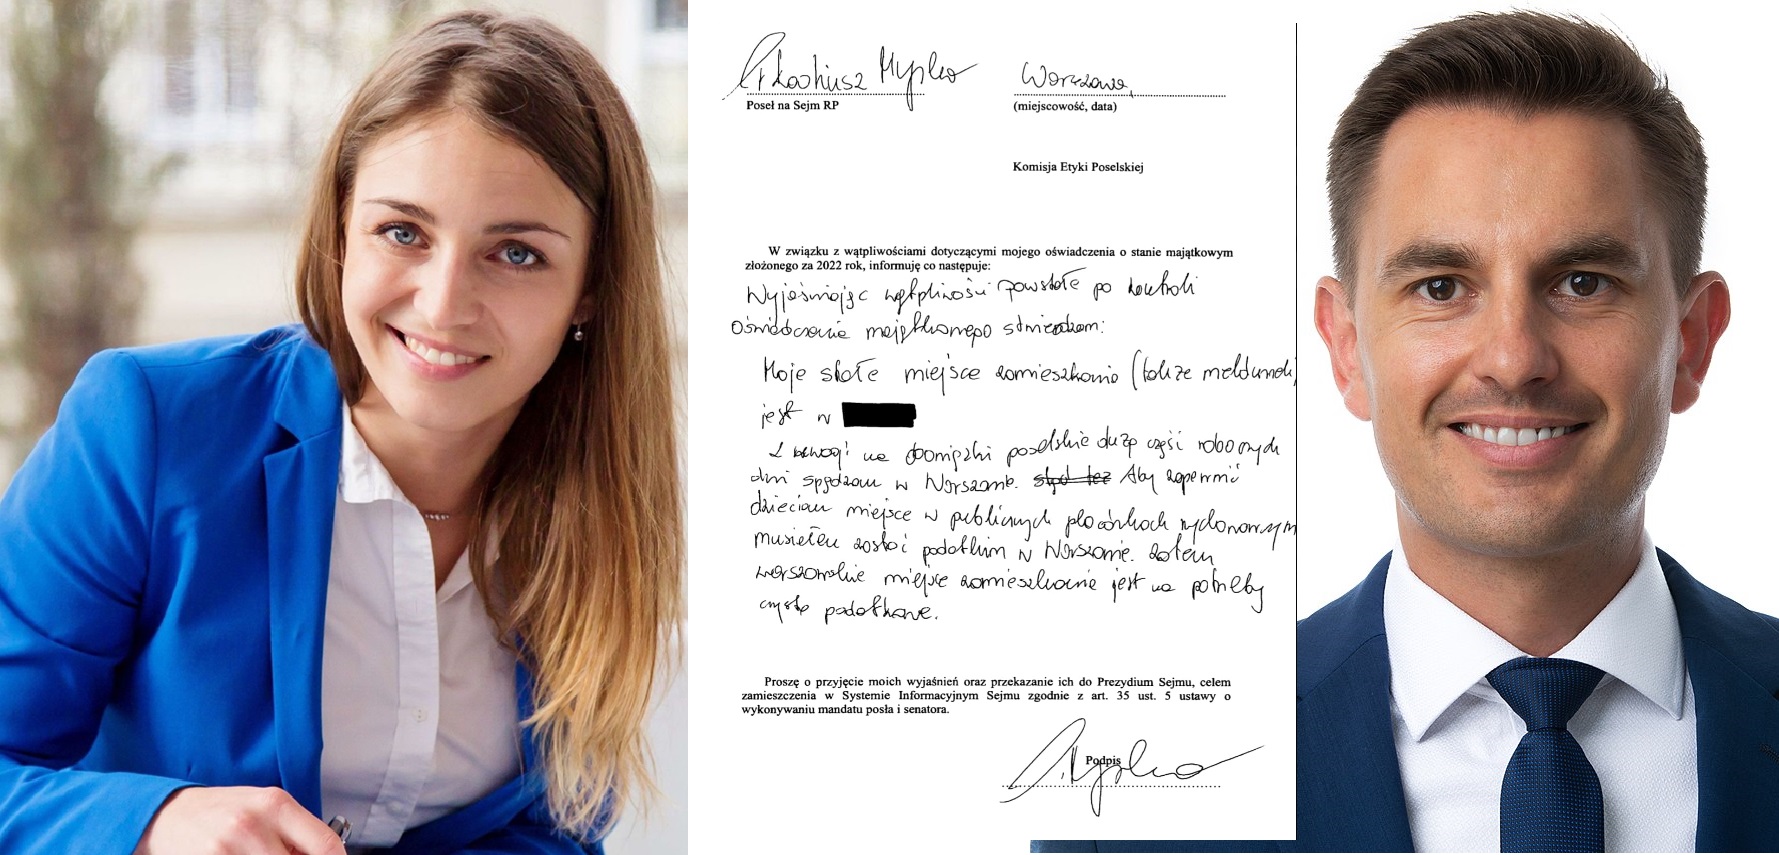 Arkadiusz Myrcha
Warszawa,
Poseł na Sejm RP
(miejscowość, data)
Komisja Etyki Poselskiej
W związku z wątpliwościami dotyczącymi mojego oświadczenia o stanie majątkowym
złożonego za 2022 rok, informuję co następuje:
Wyjaśniając wątpliwości powstałe po kontroli
Oświadczenia majątkowego stwierdzam:
Moje stałe miejsce zamieszkania (także meldunek)
jest w
Z uwagi na obowiązki poselskie dużą część roboczych
dni spędzam w Warszawie. stąd też Aby zapewnić
dzieciom miejsce w publicznych placówkach wychowawczym
musiałem zostać podatkim w Warszawie. Zatem
warszawskie miejsce zamieszkania jest na potrzeby
czysto podatkowe.
Proszę o przyjęcie moich wyjaśnień oraz przekazanie ich do Prezydium Sejmu, celem
zamieszczenia w Systemie Informacyjnym Sejmu zgodnie z art. 35 ust. 5 ustawy o
wykonywaniu mandatu posła i senatora.
Podpis